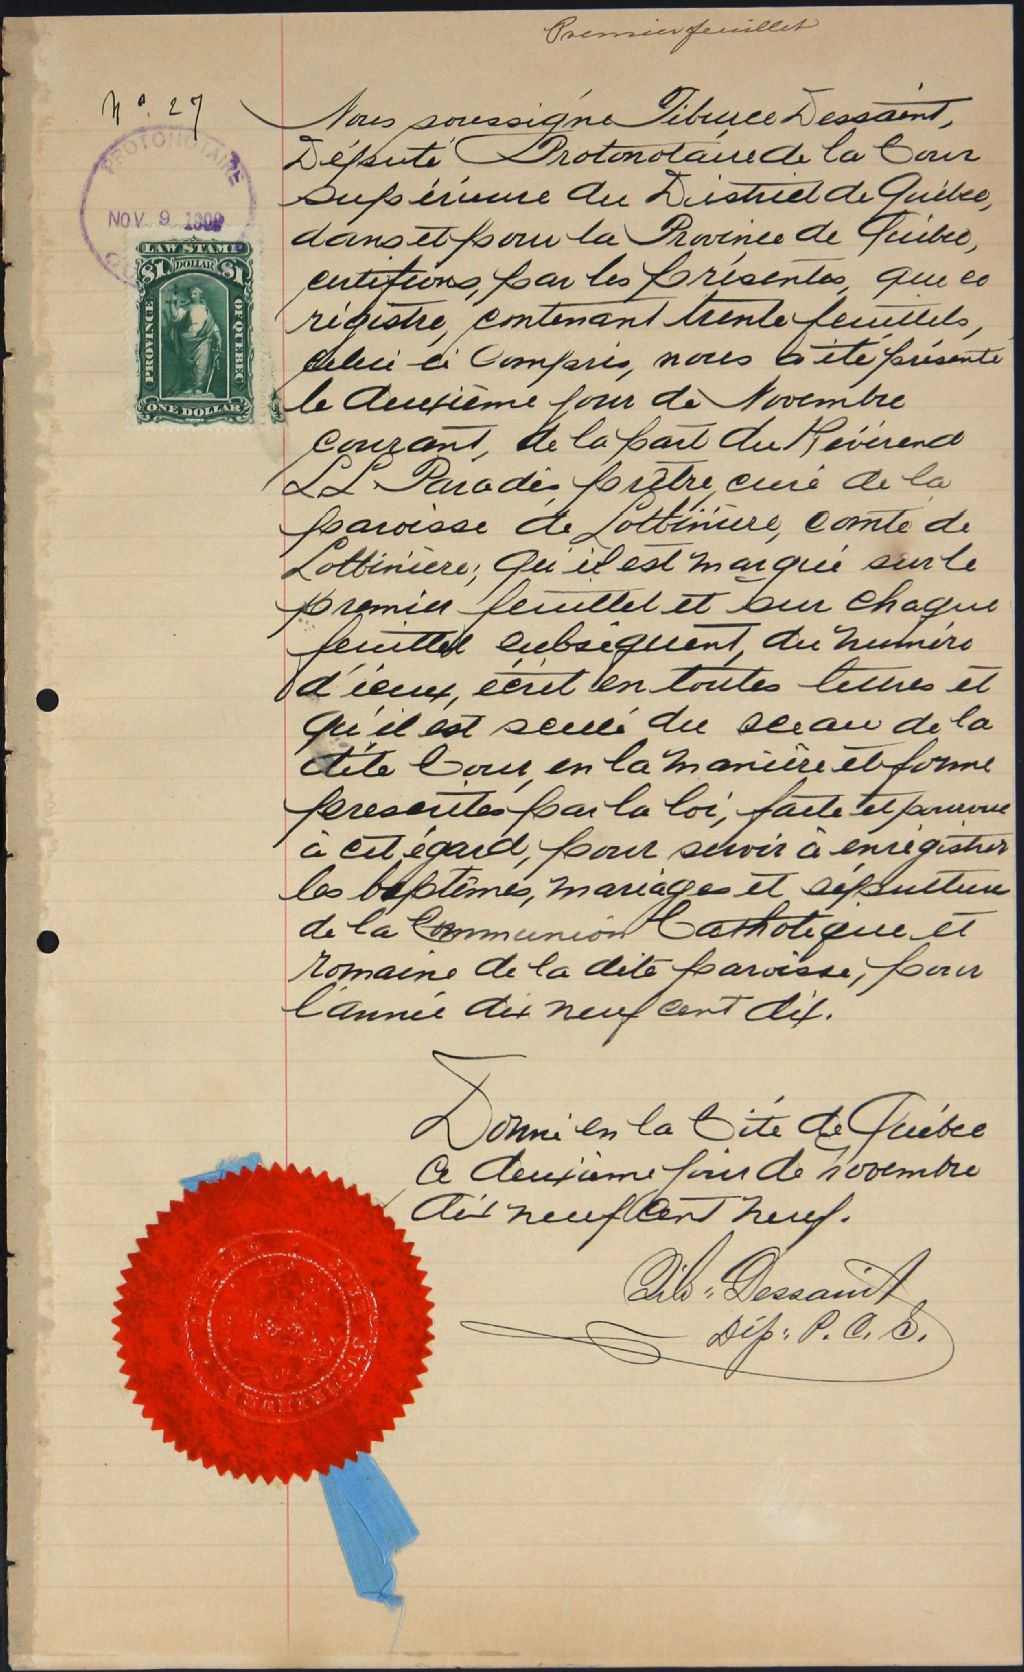 Premier feuillet
No. 27
Nous soussigné Tiburce Dessaint,
Député Protonotaire de la Cour
Supérieure du District de Québec,
dans et pour la Province de Québec,
certifions, par les présentes, que ce
régistre, contenant trente feuillets,
celui ci compris, nous a été présenté
le deuxième jour de Novembre
courant, de la part du Révérend
L L Paradis, prêtre, curé de la
paroisse de Lotbinière, comté de
Lotbinière; qu'il est marqué sur le
premier feuillet et sur chaque
feuillet subséquent, du numéro
d'iceux, écrit en toutes lettres et
qu'il est scellé du sceau de la
dite Cour, en la manière et forme
prescrites par la loi, faite et pourvue
à cet égard, pour servir à enrégistrer
les baptêmes, mariages et sépulture
de la Communion Catholique et
romaine de la dite paroisse, pour
l'année dix neuf cent dix.
Donné en la Cité de Québec
ce deuxième jour de novembre
dix neuf cent neuf.
Tib: Dessaint
Dép: P. C. S.
PROTONOTAIRE
NOV 9 1909
LAW STAMP
$1 DOLLAR $1
PROVINCE OF QUEBEC
ONE DOLLAR